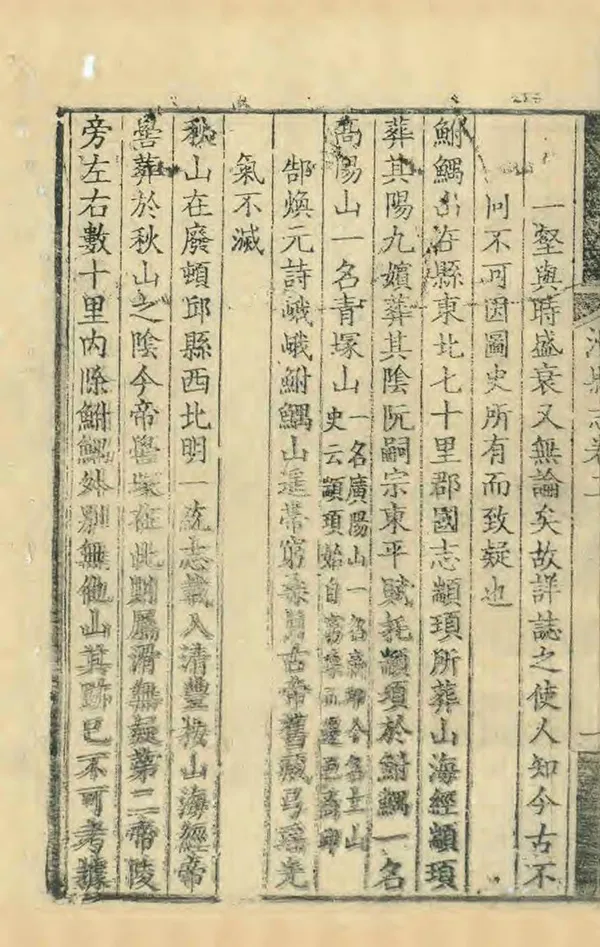 縣志卷
一壑與時盛衰又無論矣故詳誌之使人知今古不
同不可因圖史所有而致疑也
鮒鰅山在縣東北七十里郡國志顓頊所葬山海經顓頊
葬其陽九嬪葬其陰阮嗣宗東平賦托顓頊於鮒鰅一名
高陽山一名青塚山
一名廣陽山一名今名土山
史云顓頊始自窮桑而遷邑商邱
郜煥元詩峨峨鮒鰅山遙帶窮桑古帝舊藏弓瑤光
氣不滅
秋山在廢頓邱縣西北明一統志載入清豐按山海經帝
嚳葬於秋山之陰今帝嚳塚在此則屬滑無疑第二帝陵
旁左右數十里內除鮒鰅外別無他山其跡已不可考據